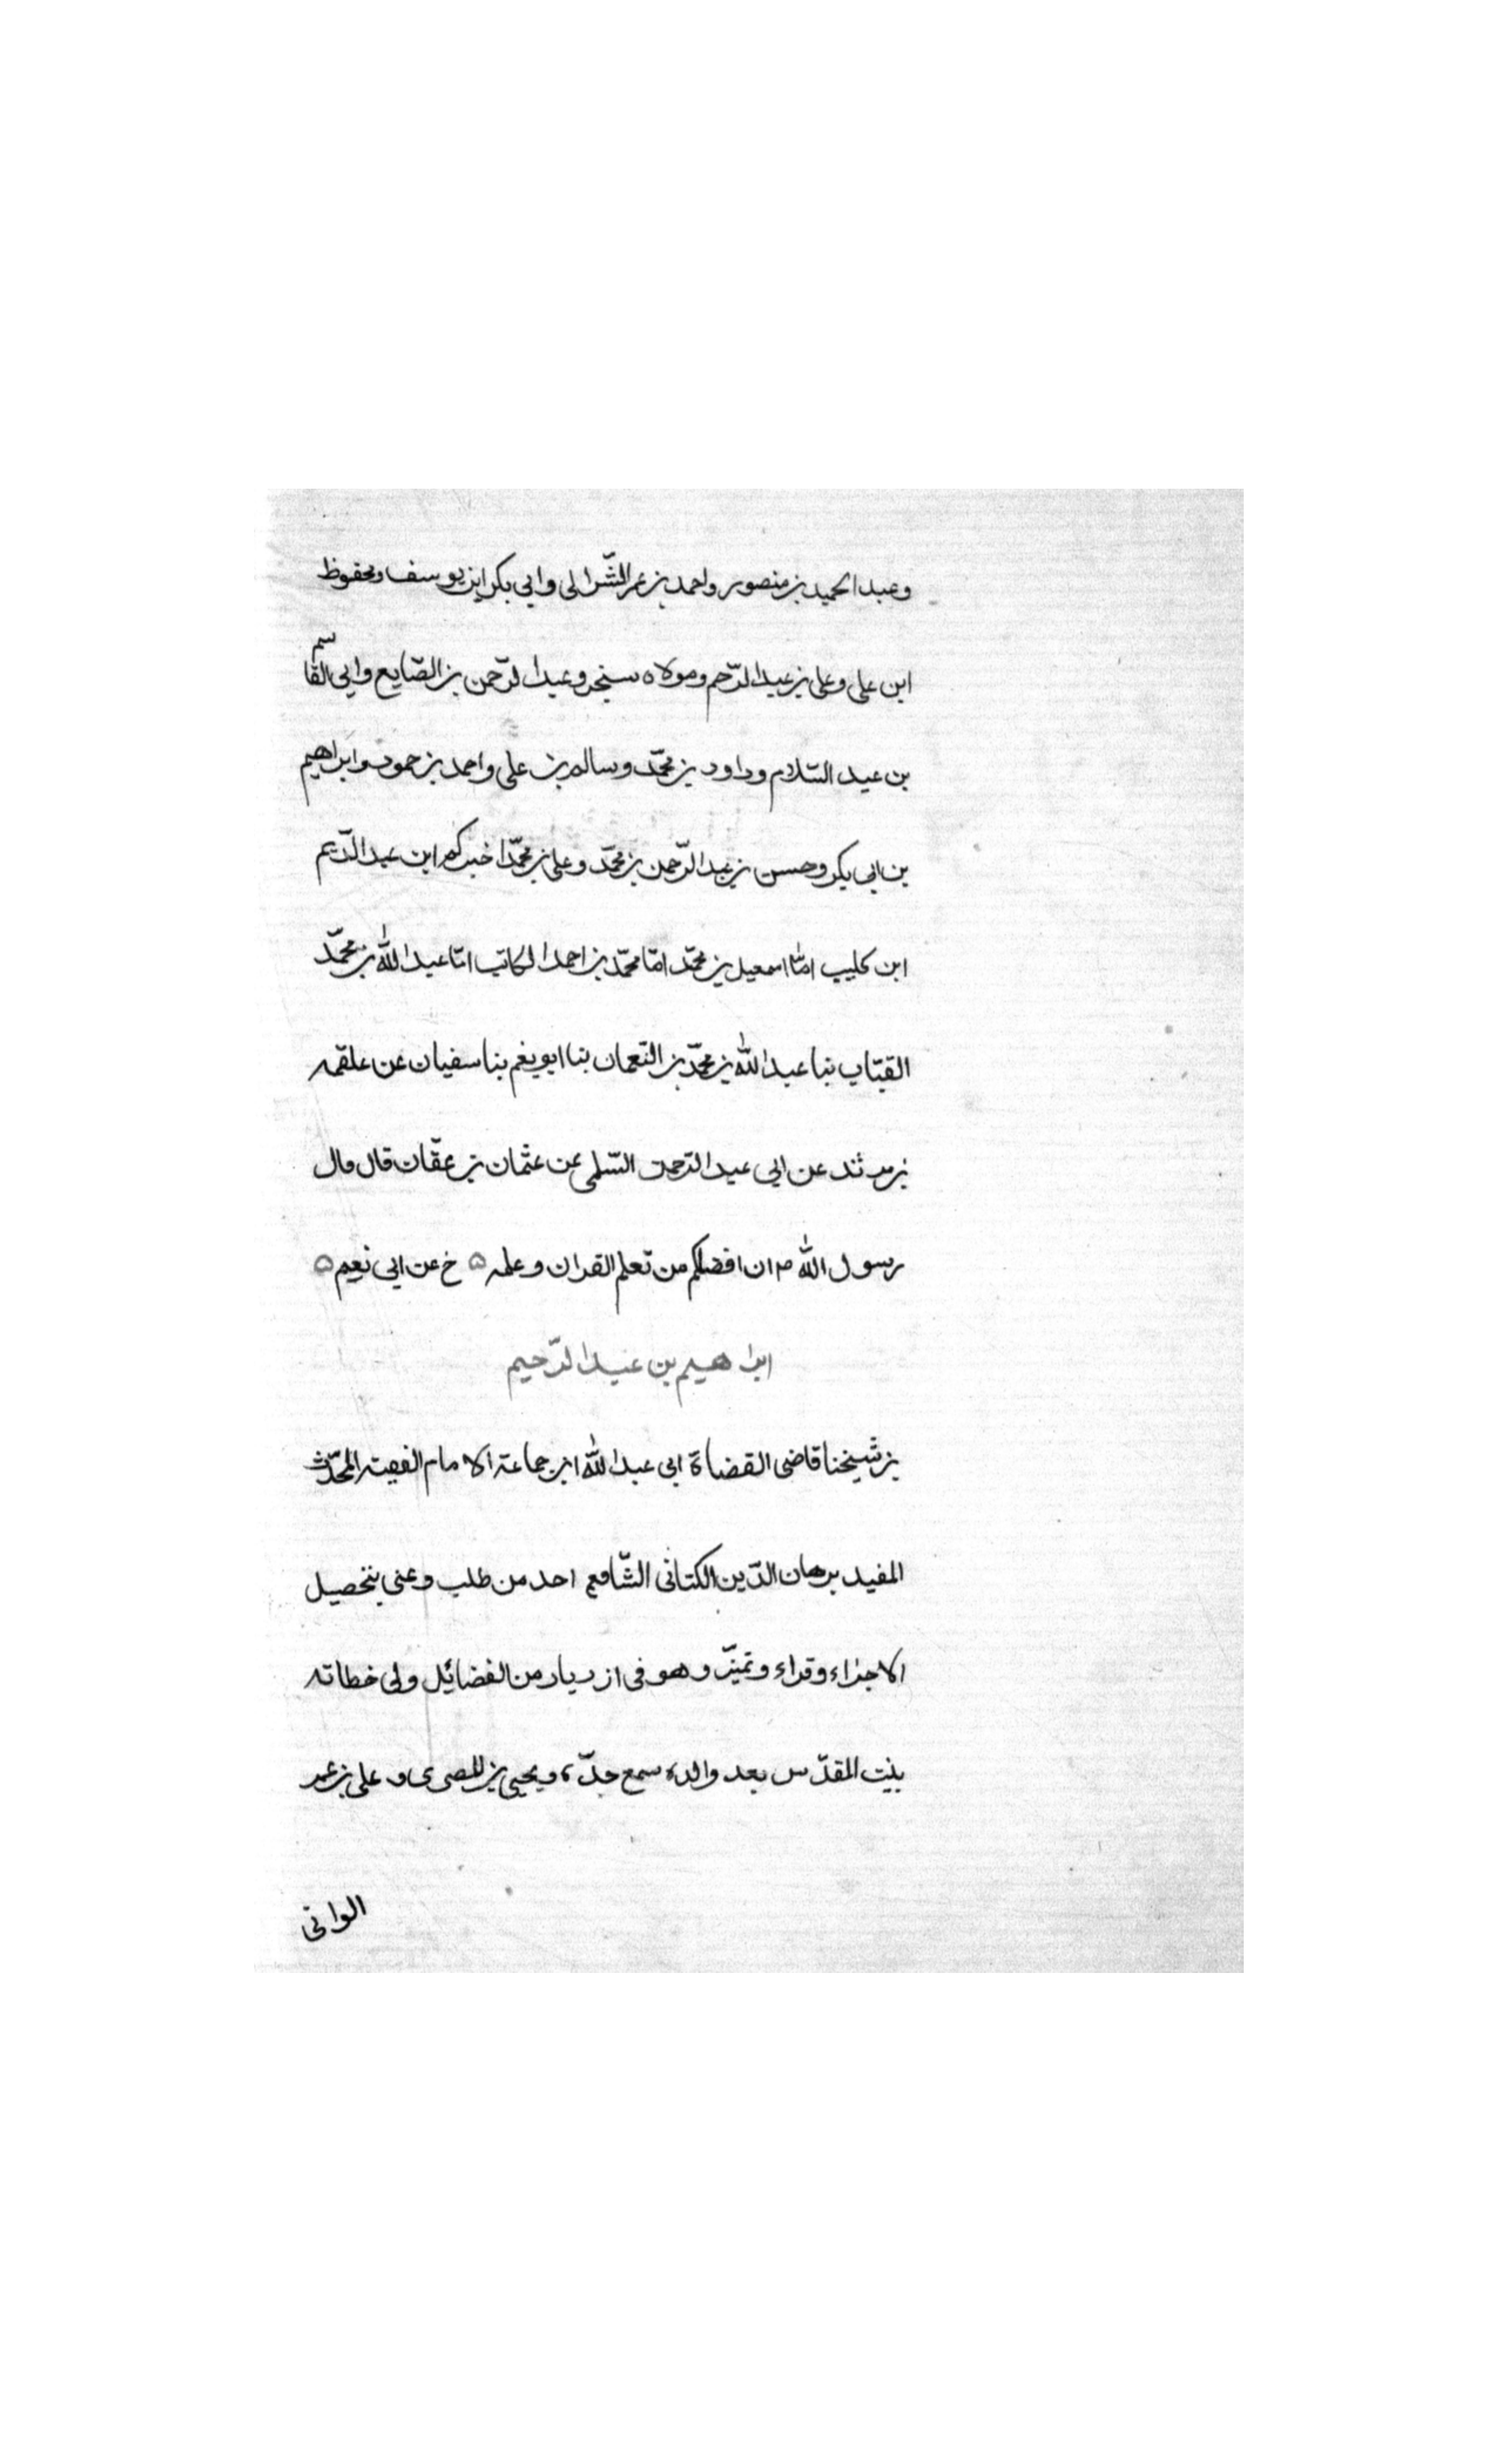 وعبد الحميد بن منصور واحمد بن عمر الشرالى وابي بكر ابن يوسف ومحفوظ
ابن على وعلى بن عبد الرّحيم ومولاه سنجر وعبد الرّحمن بن الصّايع وابي القاسم
بن عبد السّلام وداود بن محمّد وسالم بن على واحمد بن حمود وابراهيم
بن ابي بكر وحسن بن عبد الرّحمن بن محمّد وعلى بن محمّد اخبركم ابن عبد الدّيم
ابن كليب انا اسمعيل بن محمّد انا محمّد بن احمد الكاتب انا عبد الله بن محمّد
القبّاب ثنا عبد الله بن محمّد بن النّعمان ثنا ابو نعيم ثنا سفيان عن علقمه
بن مرثد عن ابي عبد الرّحمن السّلمى عن عثمان بن عفّان قال قال
رسول الله م ان افضلكم من تعلم القران وعلمه ه خ عن ابي نعيم ه
ابراهيم بن عبد الرّحيم
بن شيخنا قاضى القضاة ابى عبد الله ابن جماعة الامام الفقيه المحدّث
المفيد برهان الدّين الكنانى الشّافعى احد من طلب وعنى بتحصيل
الاجزاء وقراء وتميّز وهو فى ازدياد من الفضائل ولى خطاته
بيت المقدّس بعد والده سمع جدّه ويحيى بن المصرى وعلى بن عمر
الوانى